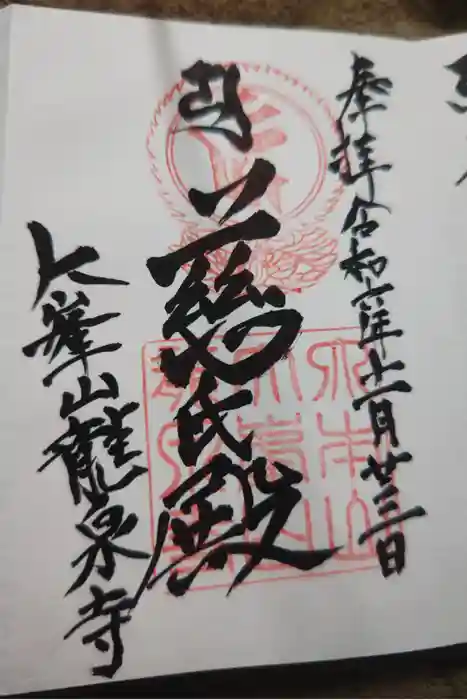 奉拝 令和六年十一月廿三日
慈氏殿
大峯山龍泉寺